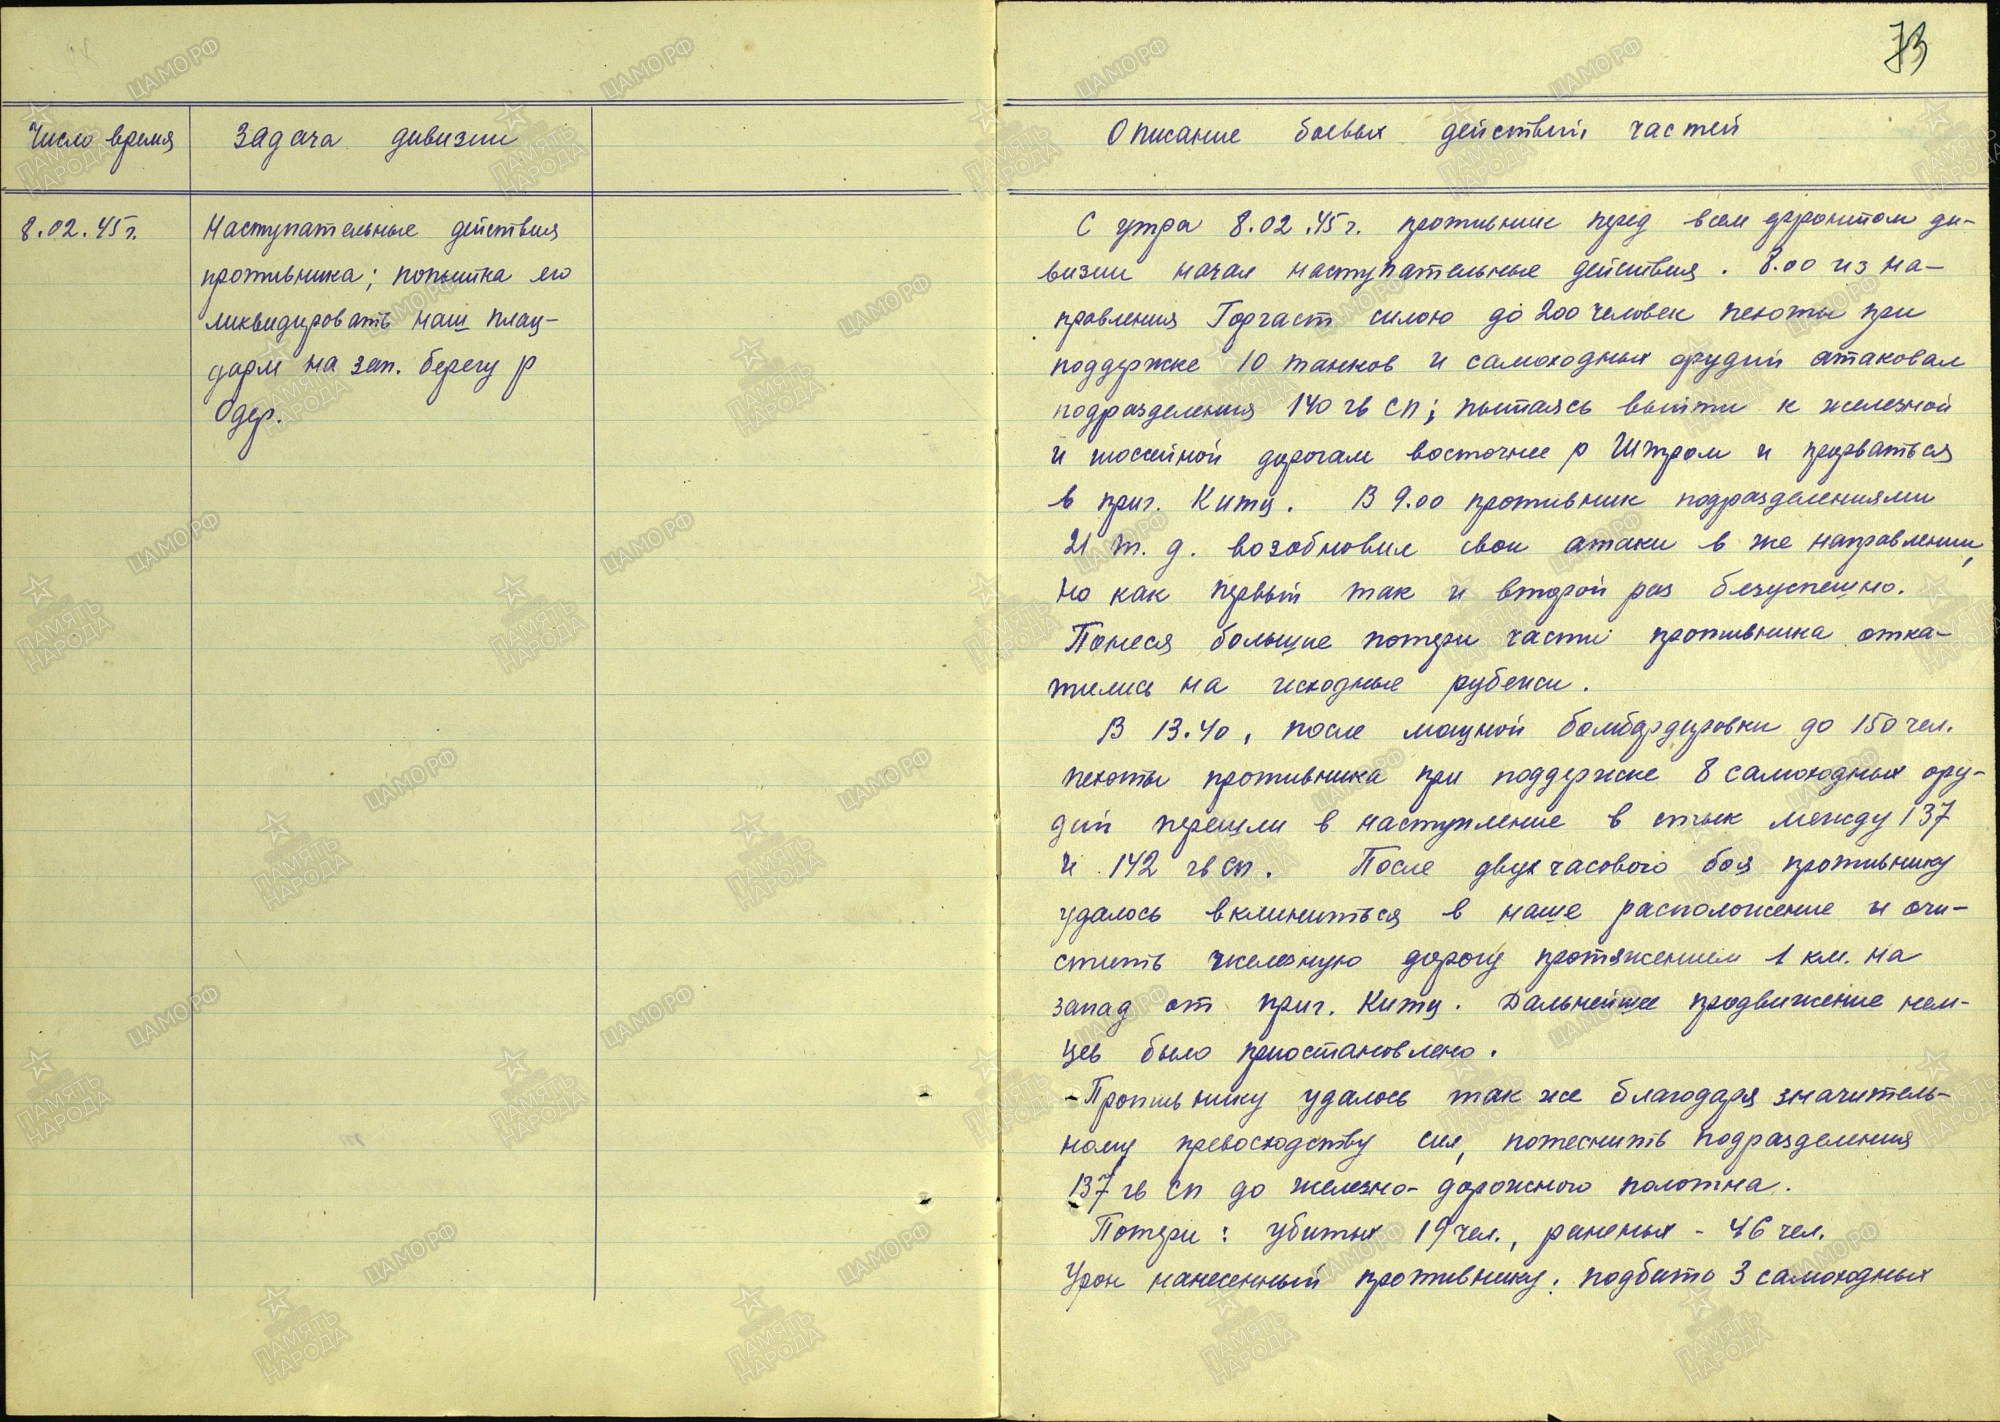 73
Число время
Задача дивизии
8.02.45г.
Наступательные действия
противника; попытка его
ликвидировать наш плац-
дарм на зап. берегу р
Одер.
Описание боевых действий частей
С утра 8.02.45г. противник перед всем фронтом ди-
визии начал наступательные действия. 8.00 из на-
правления Горгаст силою до 200 человек пехоты при
поддержке 10 танков и самоходных орудий атаковал
подразделения 140 гв сп; пытаясь выйти к железной
и шоссейной дорогам восточнее р Штром и прорваться
в приг. Китц. В 9.00 противник подразделениями
21 т. д. возобновил свои атаки в же направлении,
но как первый так и второй раз безуспешно.
Понеся большие потери части противника отка-
тились на исходные рубежи.
В 13.40, после мощной бомбардировки до 150 чел.
пехоты противника при поддержке 8 самоходных ору-
дий перешли в наступление в стык между 137
и 142 гв сп. После двух часового боя противнику
удалось вклиниться в наше расположение и очи-
стить железную дорогу протяжением 1 км. на
запад от приг. Китц. Дальнейшее продвижение нем-
цев было приостановлено.
- Противнику удалось так же благодаря значитель-
ному превосходству сил, потеснить подразделения
137 гв сп до железно-дорожного полотна.
Потери: убитых 19 чел., раненых - 46 чел.
Урон нанесенный противнику: подбито 3 самоходных
ЦАМО РФ
ПАМЯТЬ НАРОДА